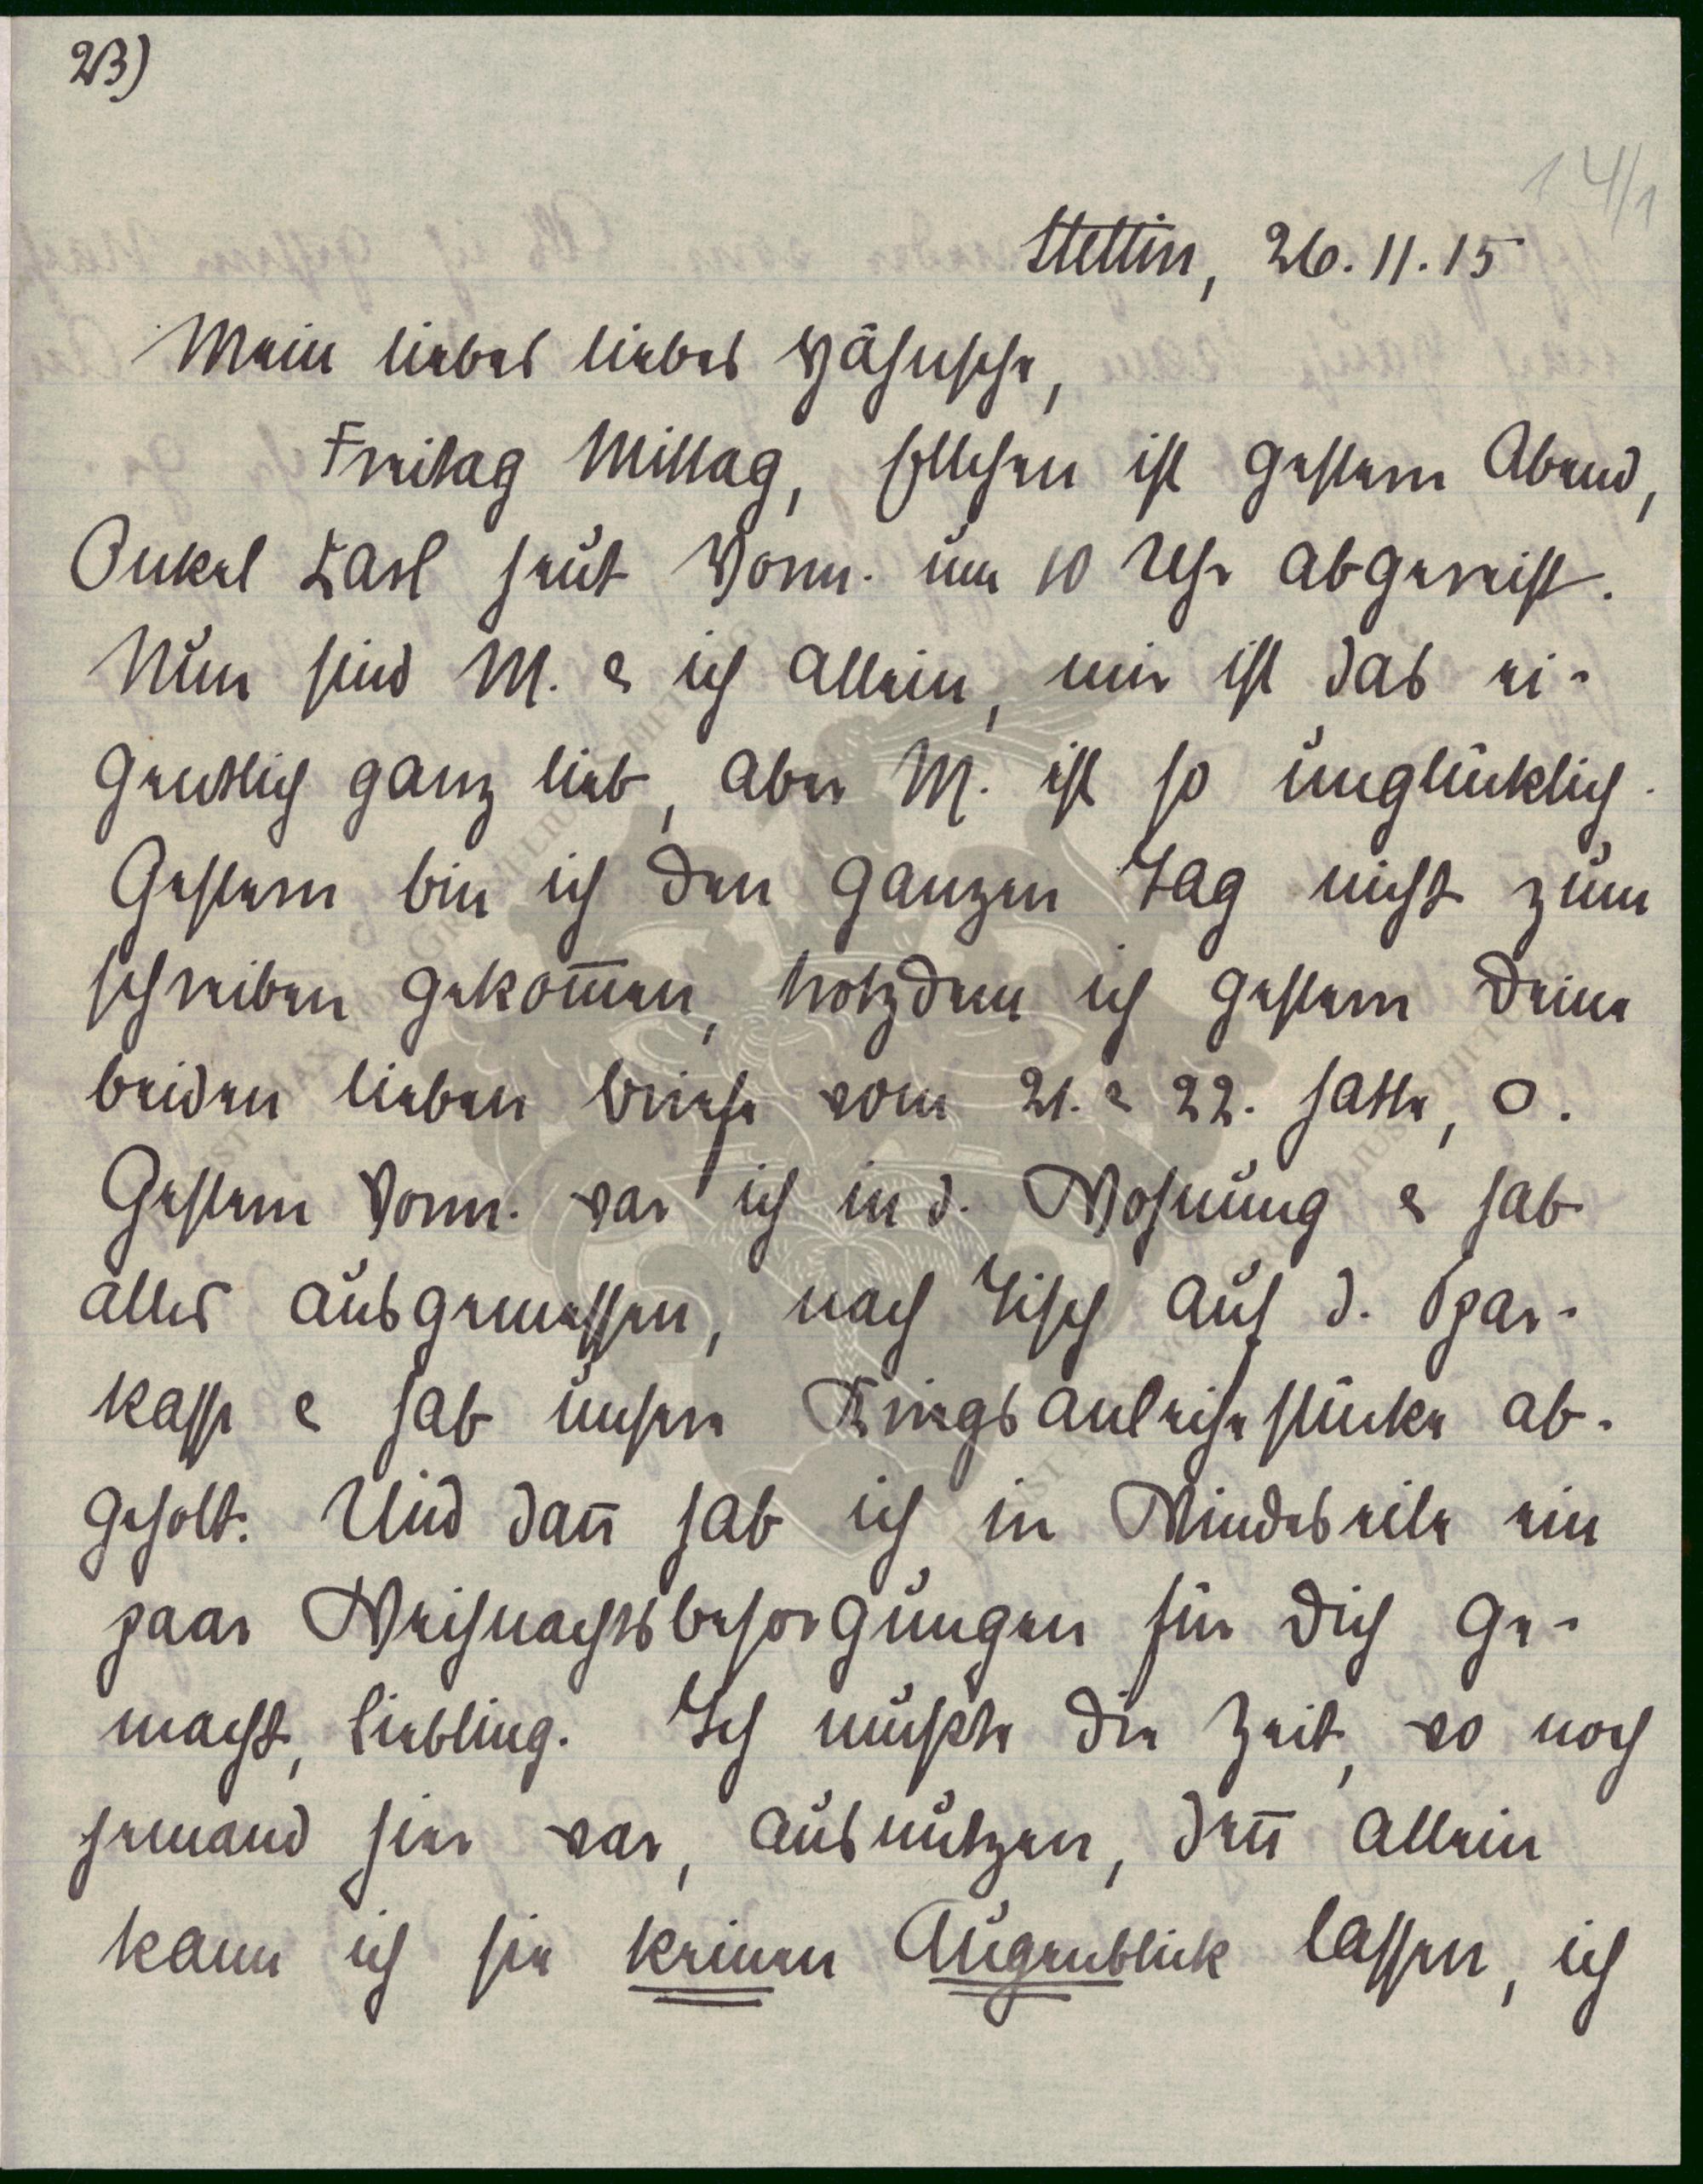 23)
14/1
Stettin, 26.11.15
Mein liebes liebes Hähnsche,
Freitag Mittag, Ellchen ist gestern Abend,
Onkel Karl heut Vorm. um 10 Uhr abgereist.
Nun sind M. & ich allein, mir ist das ei-
gentlich ganz lieb, aber M. ist so unglücklich.
Gestern bin ich den ganzen Tag nicht zum
schreiben gekom̅en, trotzdem ich gestern Deine
beiden lieben Briefe vom 21. & 22. hatte, o.
Gestern Vorm. war ich in d. Wohnung & hab
alles ausgemessen, nach Tisch auf d. Spar-
kasse & hab unsere Kriegsanleihestücke ab-
geholt. Und dan̅ hab ich in Windeseile ein
paar Weihnachtsbesorgungen für Dich ge-
macht, Liebling. Ich mußte die Zeit, wo noch
jemand hier war, ausnutzen, den̅ allein
kann ich sie keinen Augenblick lassen, ich